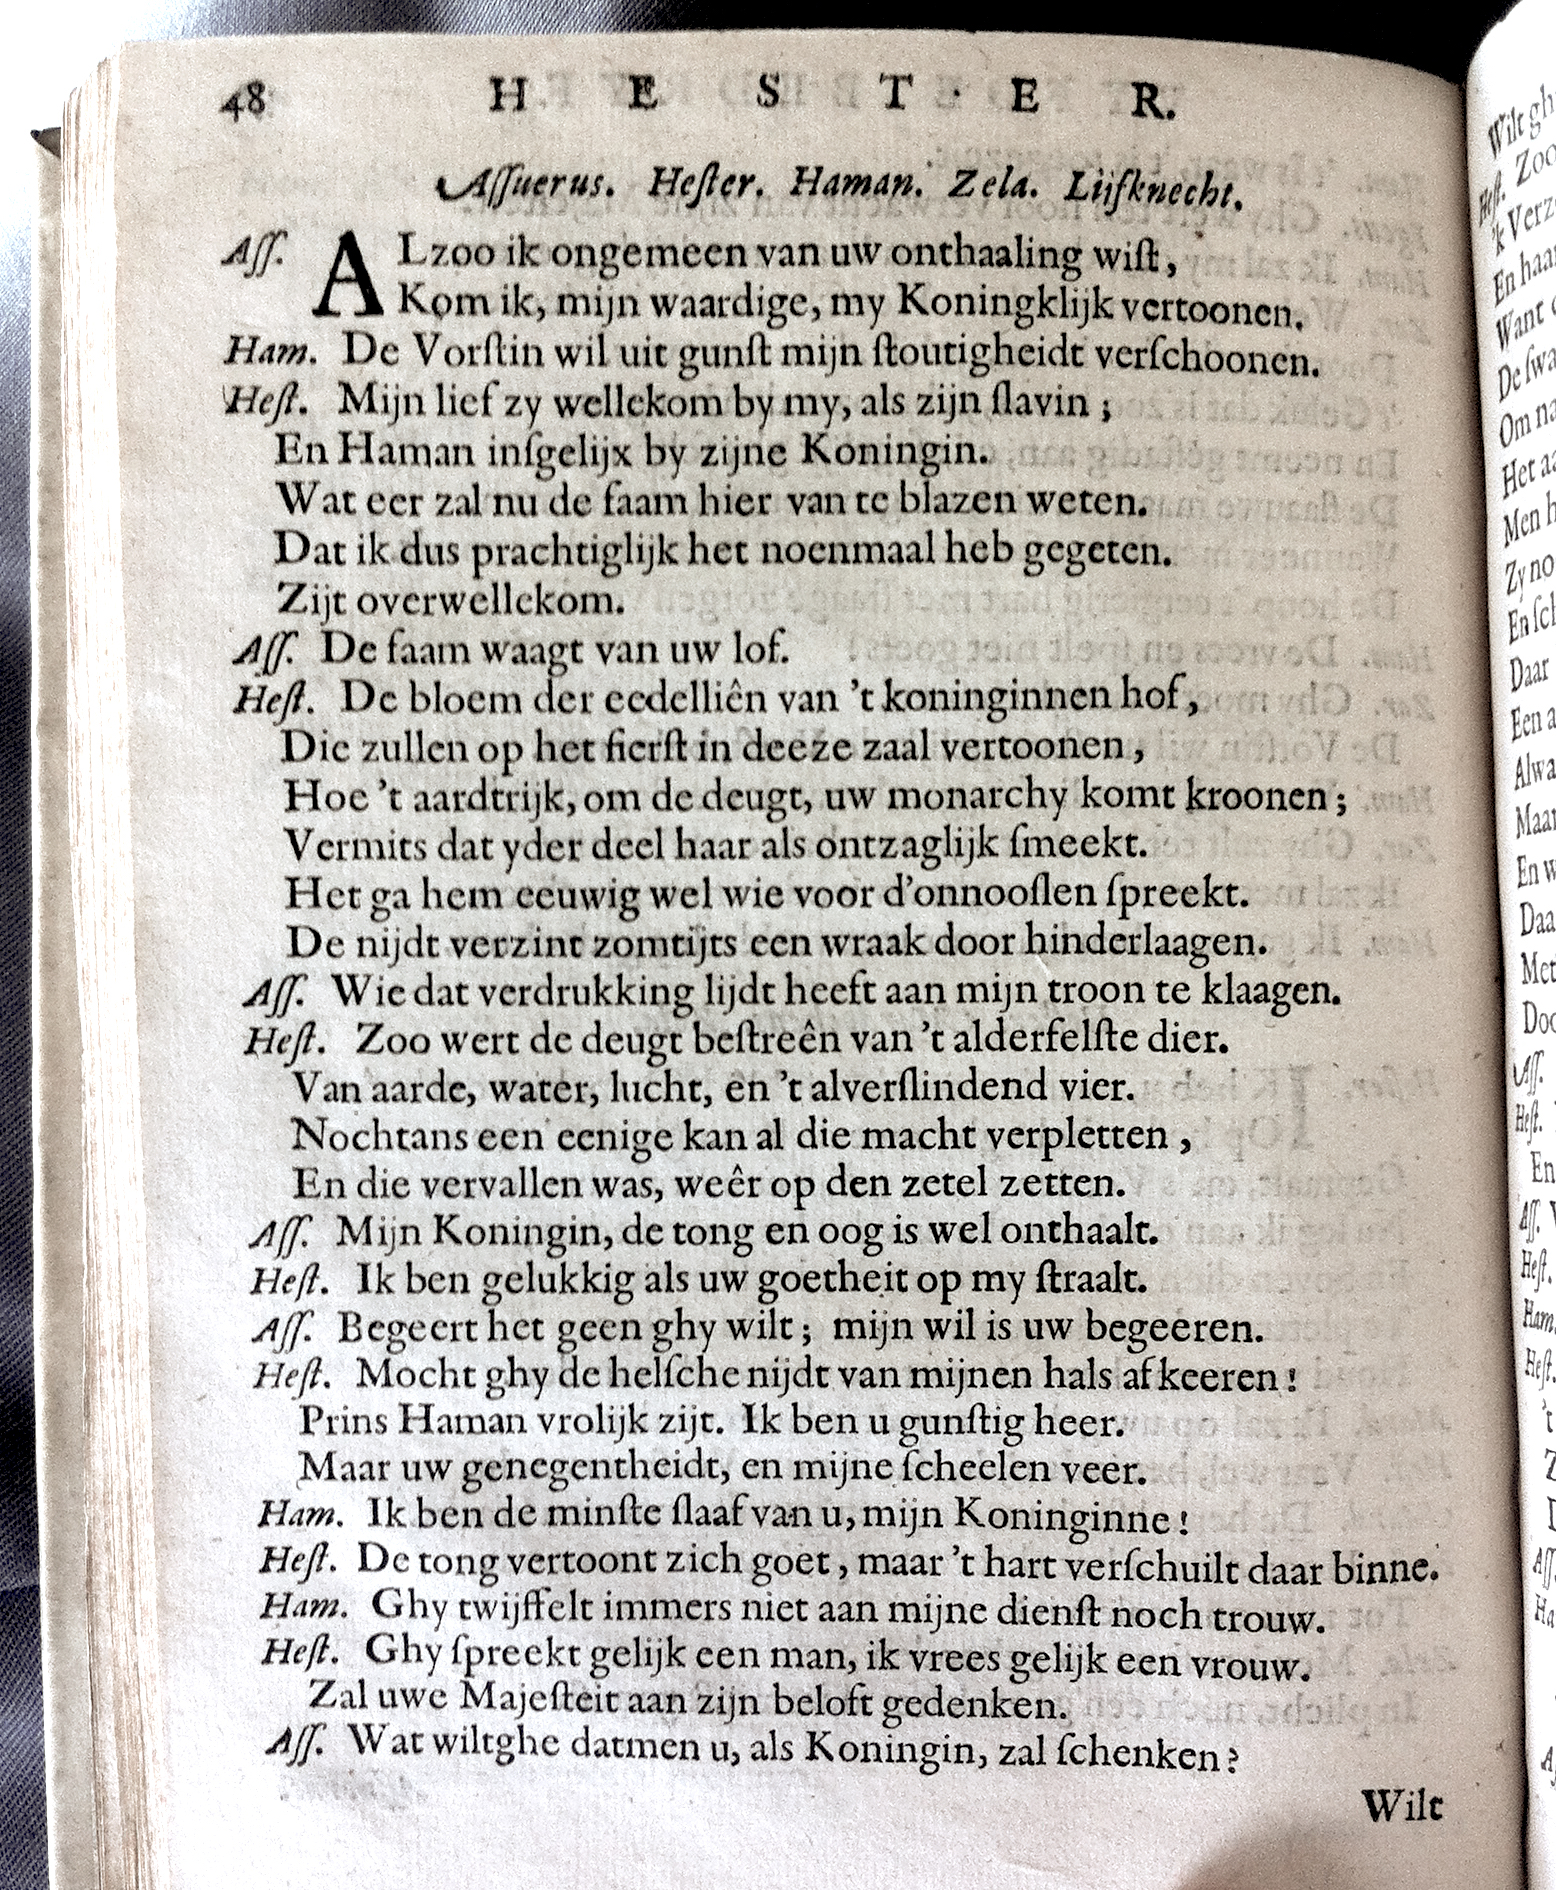 48 H E S T E R.
Aſſuerus. Heſter. Haman. Zela. Lijfknecht.
Aſſ. ALzoo ik ongemeen van uw onthaaling wiſt,
Kom ik, mijn waardige, my Koningklijk vertoonen.
Ham. De Vorſtin wil uit gunſt mijn ſtoutigheidt verſchoonen.
Heſt. Mijn lief zy wellekom by my, als zijn ſlavin;
En Haman inſgelijx by zijne Koningin.
Wat eer zal nu de faam hier van te blazen weten.
Dat ik dus prachtiglijk het noenmaal heb gegeten.
Zijt overwellekom.
Aſſ. De faam waagt van uw lof.
Heſt. De bloem der eedelliên van 't koninginnen hof,
Die zullen op het fierſt in deeze zaal vertoonen,
Hoe 't aardtrijk, om de deugt, uw monarchy komt kroonen;
Vermits dat yder deel haar als ontzaglijk ſmeekt.
Het ga hem eeuwig wel wie voor d'onnooſlen ſpreekt.
De nijdt verzint zomtijts een wraak door hinderlaagen.
Aſſ. Wie dat verdrukking lijdt heeft aan mijn troon te klaagen.
Heſt. Zoo wert de deugt beſtreên van 't alderfelſte dier.
Van aarde, water, lucht, en 't alverſlindend vier.
Nochtans een eenige kan al die macht verpletten,
En die vervallen was, weêr op den zetel zetten.
Aſſ. Mijn Koningin, de tong en oog is wel onthaalt.
Heſt. Ik ben gelukkig als uw goetheit op my ſtraalt.
Aſſ. Begeert het geen ghy wilt; mijn wil is uw begeeren.
Heſt. Mocht ghy de helſche nijdt van mijnen hals afkeeren!
Prins Haman vrolijk zijt. Ik ben u gunſtig heer.
Maar uw genegentheidt, en mijne ſcheelen veer.
Ham. Ik ben de minſte ſlaaf van u, mijn Koninginne!
Heſt. De tong vertoont zich goet, maar 't hart verſchuilt daar binne.
Ham. Ghy twijffelt immers niet aan mijne dienſt noch trouw.
Heſt. Ghy ſpreekt gelijk een man, ik vrees gelijk een vrouw.
Zal uwe Majeſteit aan zijn beloft gedenken.
Aſſ. Wat wiltghe datmen u, als Koningin, zal ſchenken?
Wilt